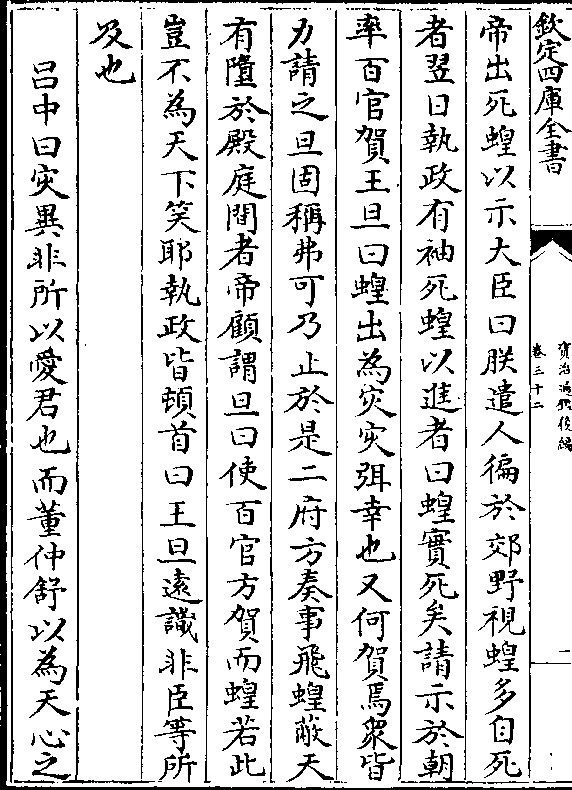 欽定四庫全書
資治通鑑後編
卷三十二
一
帝出死蝗以示大臣曰朕遣人徧於郊野視蝗多自死
者翌日執政有袖死蝗以進者曰蝗實死矣請示於朝
率百官賀王旦曰蝗出為災災弭幸也又何賀焉衆皆
力請之旦固稱弗可乃止於是二府方奏事飛蝗蔽天
有墮於殿庭間者帝顧謂旦曰使百官方賀而蝗若此
豈不為天下笑耶執政皆頓首曰王旦遠識非臣等所
及也
吕中曰災異非所以愛君也而董仲舒以為天心之